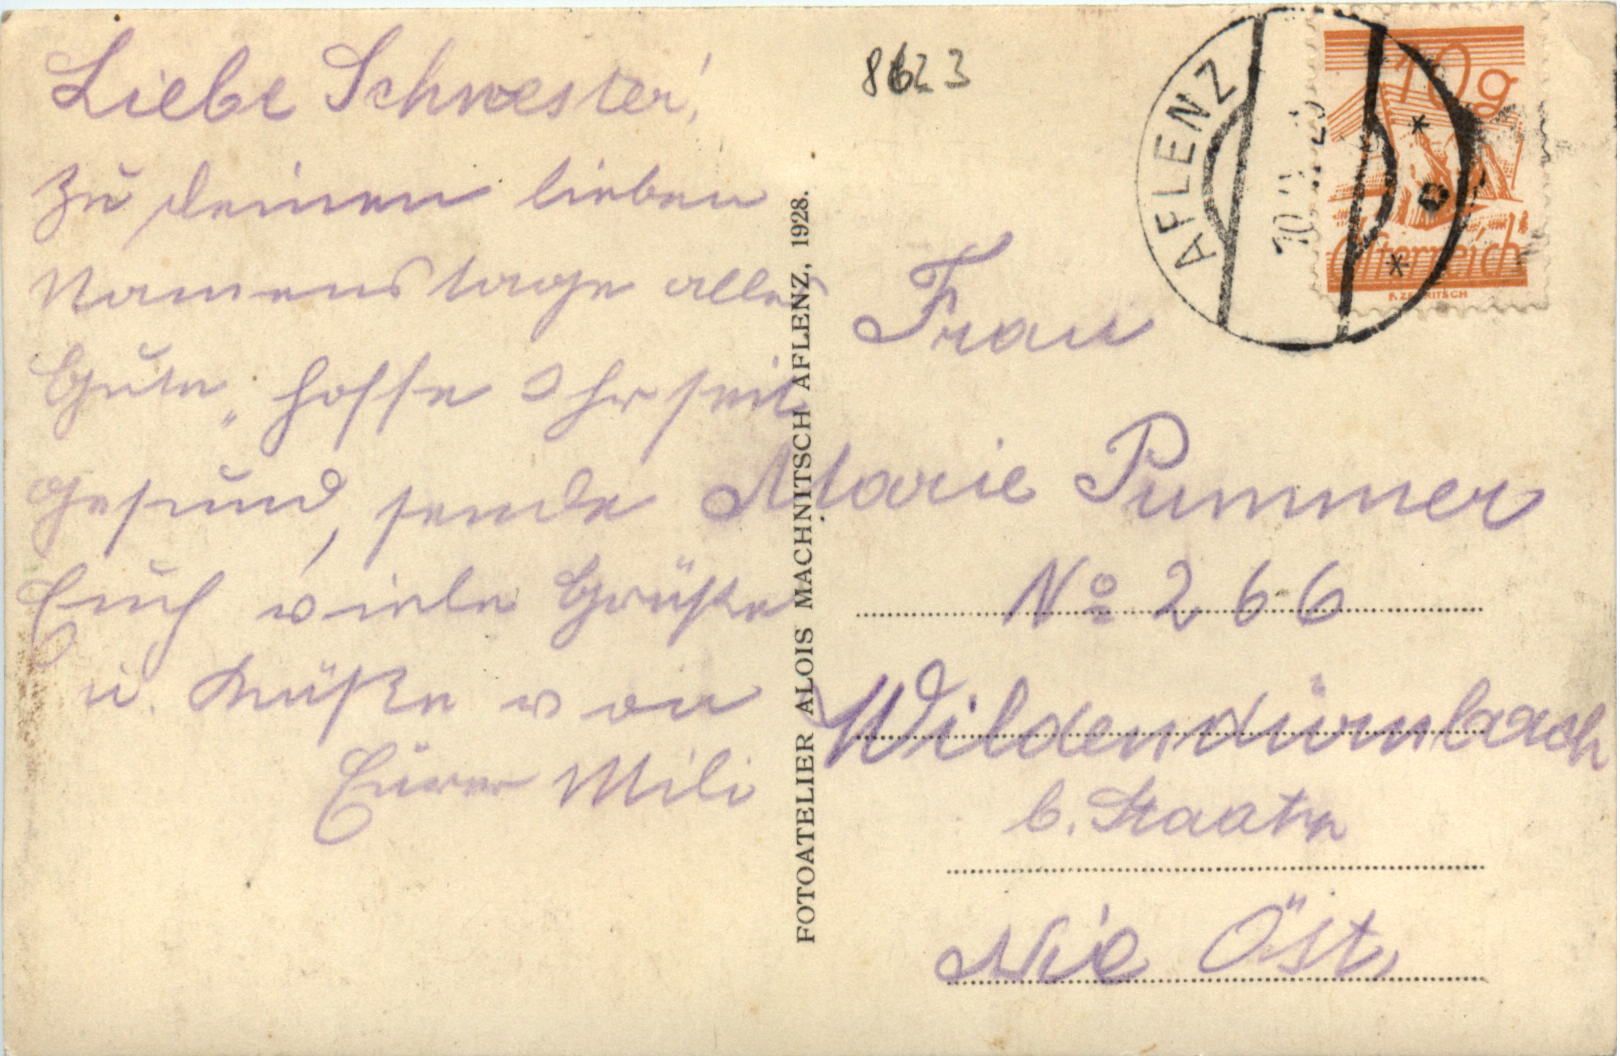 Liebe Schwester!
Zu deinem lieben
Namenstage alles
Gute, hoffe Ihr seit
gesund, sende
Euch viele Grüße
u. Küße von
Eurer Mili
8623
FOTOATELIER ALOIS MACHNITSCH AFLENZ, 1928.
AFLENZ
10g
Österreich
Frau
Marie Pummer
No 266
Wildendürnbach
b. Staatz
Nie Öst.